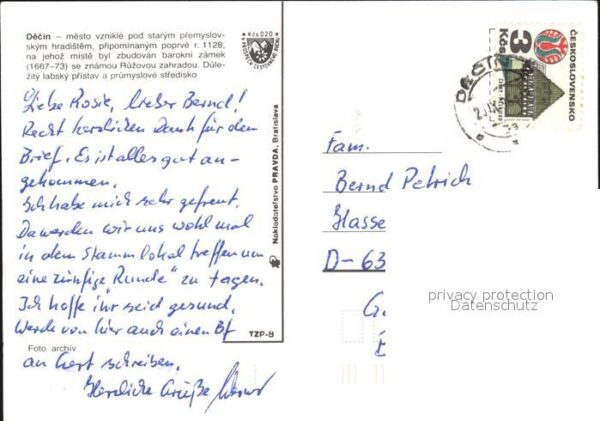 Děčín – město vzniklé pod starým přemyslov-
ským hradištěm, připomínaným poprvé r. 1128,
na jehož místě byl zbudován barokní zámek
(1667–73) se známou Růžovou zahradou. Důle-
žitý labský přístav a průmyslové středisko
Kčs 0,20
Nakladateľstvo PRAVDA, Bratislava
TZP-B
Foto archiv
Liebe Rosie, lieber Bernd!
Recht herzlichen Dank für den
Brief. Es ist alles gut an-
gekommen.
Ich habe mich sehr gefreut.
Da werden wir uns wohl mal
in dem Stammlokal treffen um
eine zünftige "Runde" zu tagen.
Ich hoffe ihr seid gesund.
Werde von hier auch einen Bf
an Gert schreiben.
Herzliche Grüße
3
Kčs
ČESKOSLOVENSKO
DĚČÍN
Fam.
Bernd Petrich
Hasse
D-63
G
privacy protection
Datenschutz